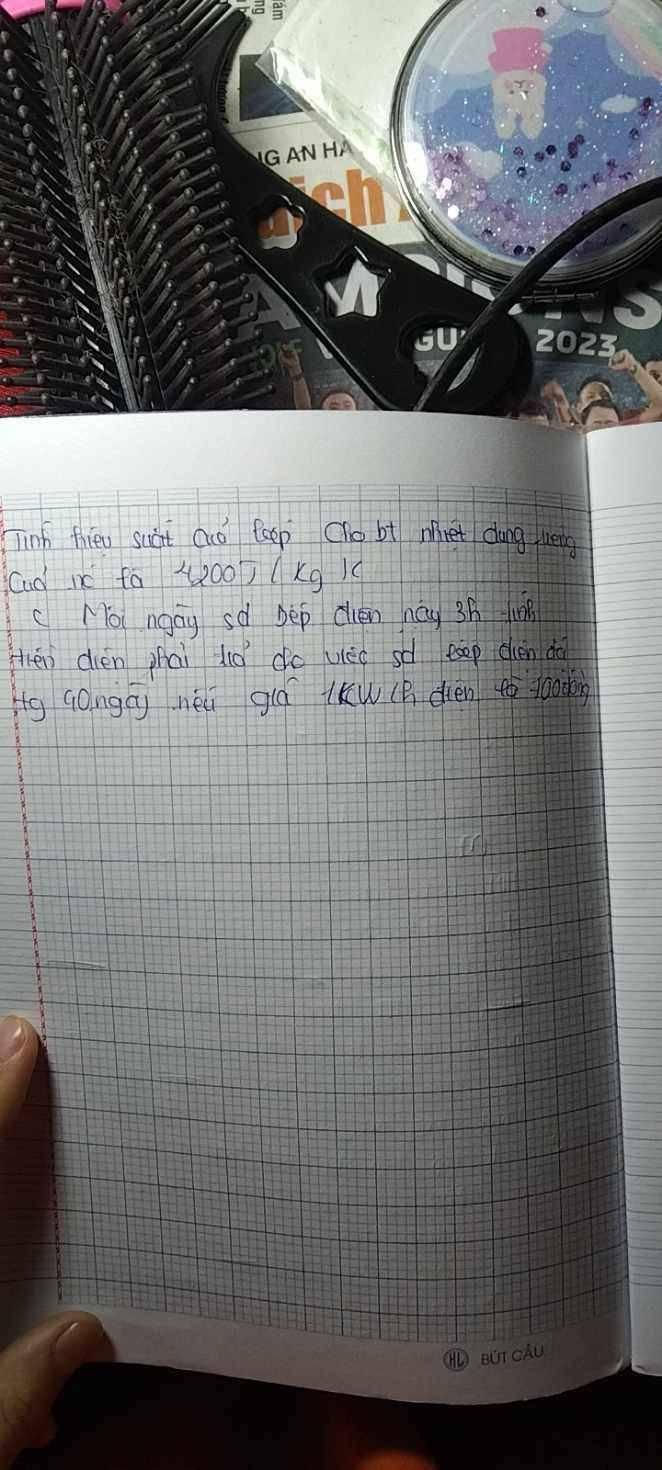 ng
ìm
G AN HA
ich
GU
2023
Tính hiệu suất của bếp Cho bt nhiệt dung riêng
Của nc là 4200J/kg K
C Mỗi ngày sd bếp điện này 3h tính
tiền điện phải trả cho việc sd bếp điện đó
tg 90 ngày nếu giá 1KW/h điện là 700đồng
HL BÚT CẦU